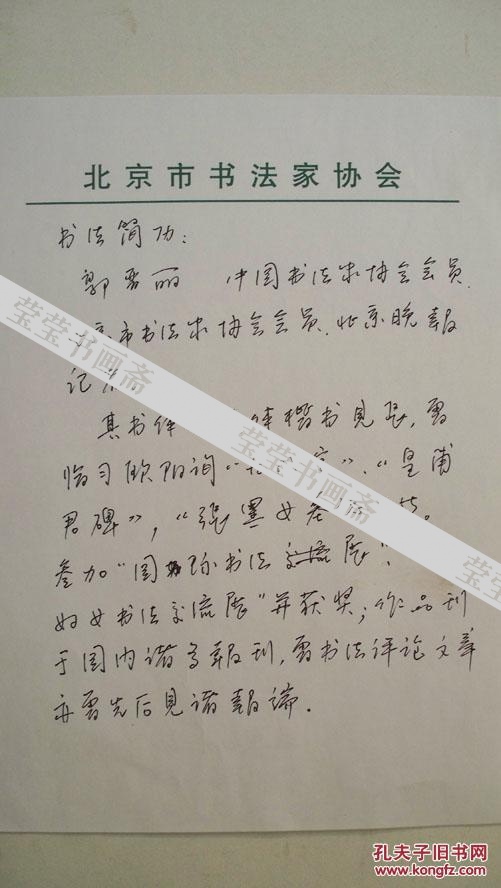 北京市书法家协会
书法简功:
郭雪丽 中国书法家协会会员、
京市书法家协会会员、北京晚报
记者。
其书作 体楷书见长,曾
临习欧阳询“ ”、“皇甫
君碑”,“张黑女 。
参加“国际书法交流展”、
妇女书法交流展”并获奖;作品刊
于国内诸多报刊,曾书法评论文章
亦曾先后见诸报端.
莹莹书画斋
莹莹书画斋
莹莹书画斋
孔夫子旧书网
www.kongfz.com